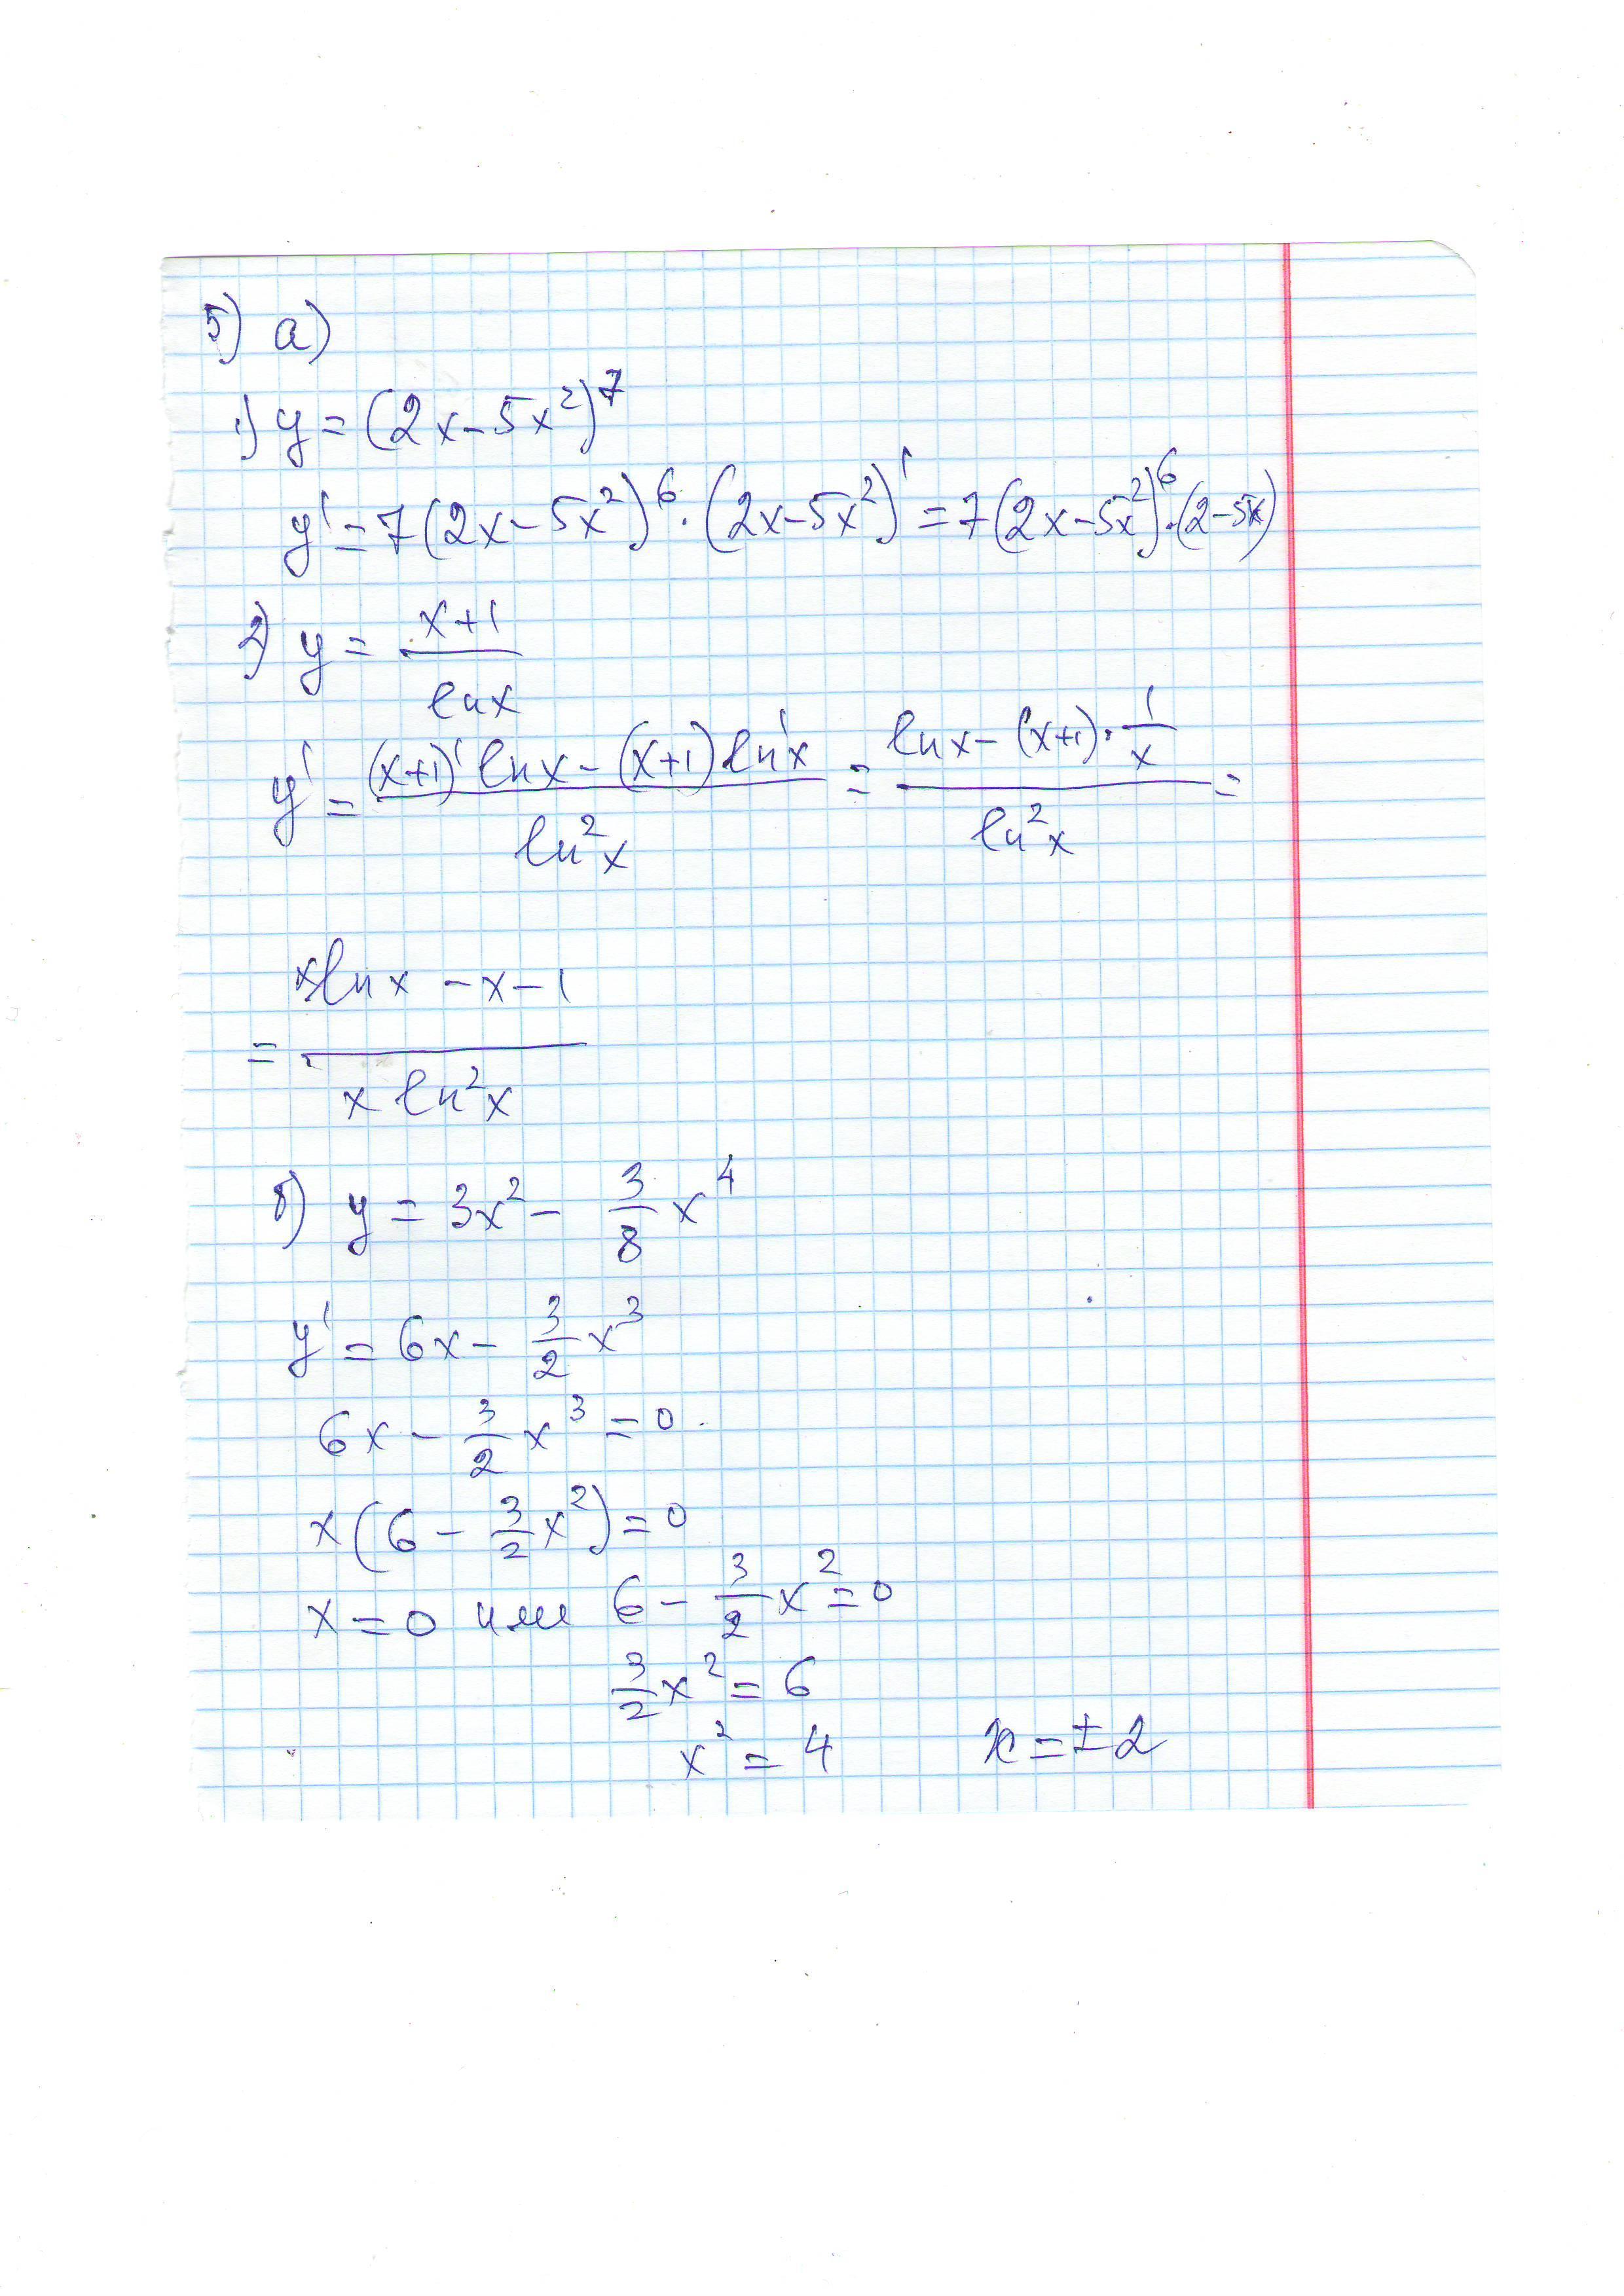 5) а)
1) y = (2x - 5x²)⁷
y' = 7(2x - 5x²)⁶ · (2x - 5x²)' = 7(2x - 5x²)⁶ · (2 - 5x)
2) y = (x+1)/(ln x)
y' = ((x+1)' ln x - (x+1) ln'x)/(ln²x) = (ln x - (x+1) · 1/x)/(ln²x) =
= (x ln x - x - 1)/(x ln²x)
б) y = 3x² - 3/8 x⁴
y' = 6x - 3/2 x³
6x - 3/2 x³ = 0
x(6 - 3/2 x²) = 0
x = 0 или 6 - 3/2 x² = 0
3/2 x² = 6
x² = 4 x = ±2